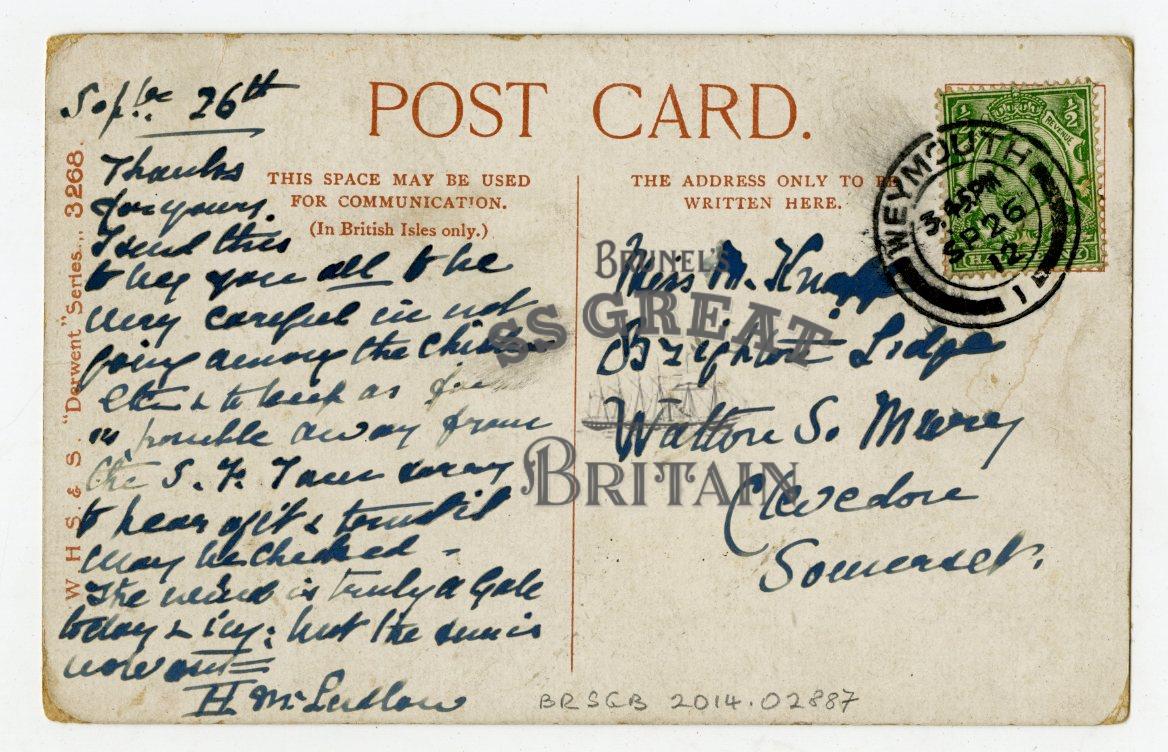 POST CARD.
THIS SPACE MAY BE USED
FOR COMMUNICATION.
(In British Isles only.)
THE ADDRESS ONLY TO BE
WRITTEN HERE.
W. H. S. & S. "Derwent" Series... 3268.
Sep.be 26th
Thanks
for yours.
I send this
to beg you all to be
very careful in not
going among the
& to keep as
away from
the S. F. I am sorry
to hear of it & trust it
may be checked -
The wind is truly a Gale
today & icy: but the sun is
now out
H M Ludlow
½ ½
REVENUE
WEYMOUTH
3.45PM
SP 26
12
Miss M. Knapp
Brighton Lodge
Walton S. Mary
Clevedon
Somerset.
BRUNEL'S
SS GREAT
BRITAIN
BRSGB 2014.02887